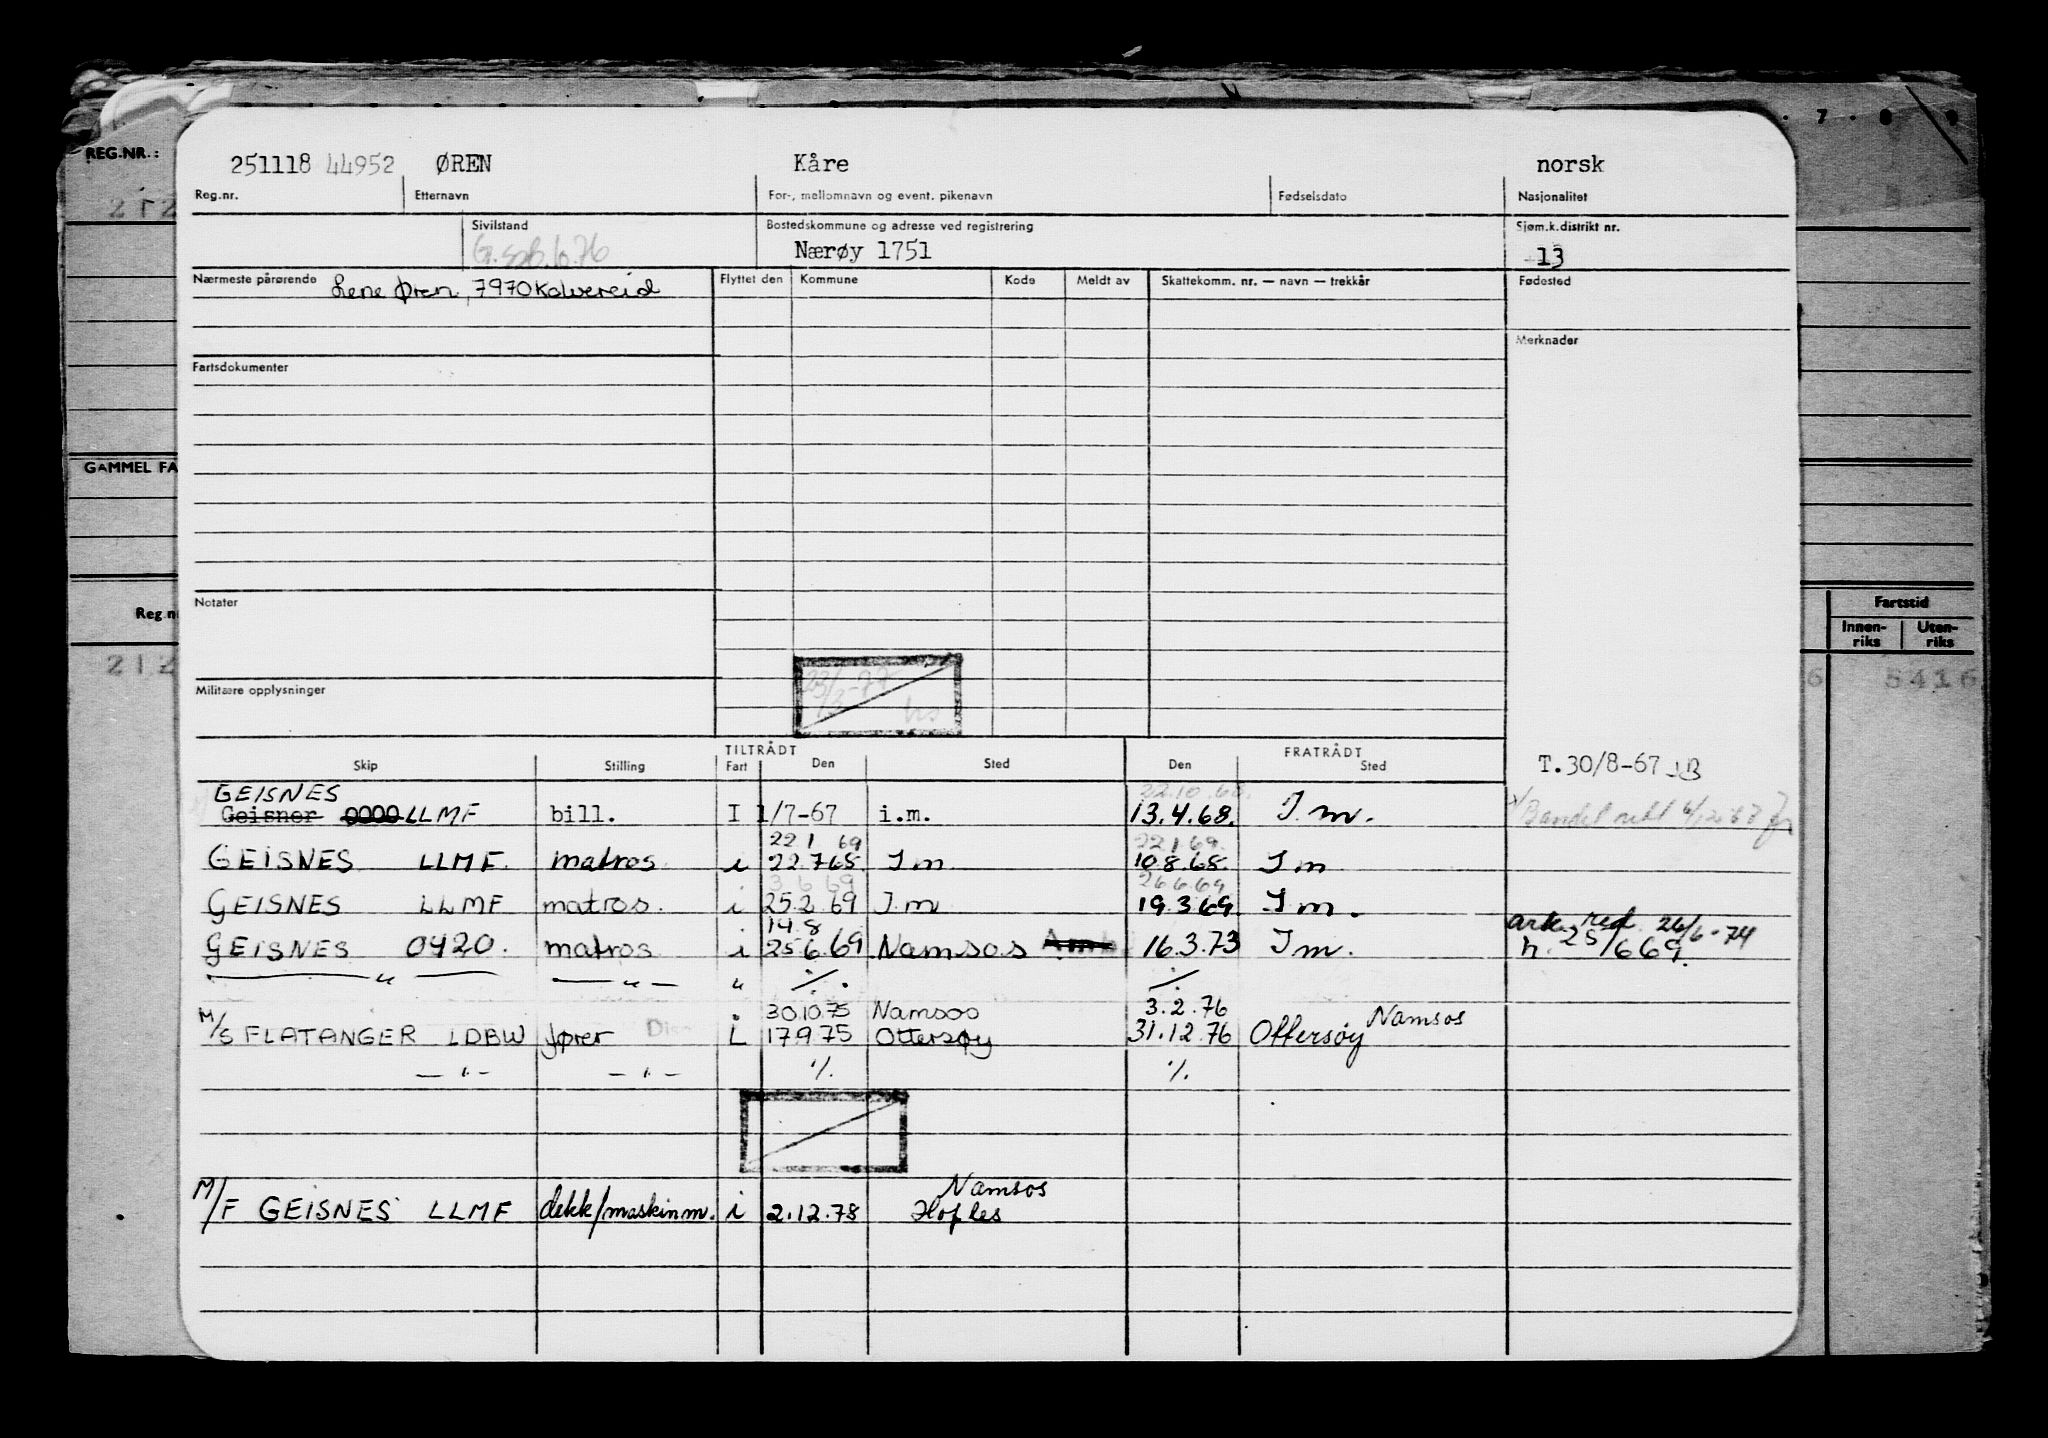 7 . 8 . 9
REG.NR.:
251118 44952 ØREN Kåre norsk
Reg.nr. Etternavn For-, mellomnavn og event. pikenavn Fødselsdato Nasjonalitet
212
Sivilstand Bostedskommune og adresse ved registrering Sjøm.k.distrikt nr.
Nærøy 1751 13
Nærmeste pårørende Lene Øren, 7970 Kolvereid Flyttet den Kommune Kode Meldt av Skattekomm. nr. — navn — trekkår Fødested
Merknader
Fartsdokumenter
GAMMEL FA
Notater
Reg.n Fartstid
Innen-riks Uten-riks
212 6 5416
Militære opplysninger
23/3-77
TILTRÅDT FRATRÅDT
Skip Stilling Fart Den Sted Den Sted T.30/8-67 JB
GEISNES 22.10.68.
Geisner 0000 LLMF bill. I 1/7-67 i.m. 13.4.68. I m.
22 1 69 22.1.69.
GEISNES LLMF. matros i 22.7.68 I m 10.8.68. I m
3 6 69 26.6.69.
GEISNES LLMF matros. i 25.2.69 I m 19.3.69. I m.
14.8 ark. red. 26/6-74
GEISNES 0420. matros i 25.6.69 Namsos 16.3.73 I m. n. 25/6 69.
— " — — " — " ⁒ . ⁒
30.10.75 Namsos 3.2.76 Namsos
M/S FLATANGER LDBW fører L 17.9.75 Ottersøy 31.12.76 Ottersøy
— " — — " — ⁒ ⁒
Namsos
M/F GEISNES LLMF dekk/maskinm. i 2.12.78 Hofles